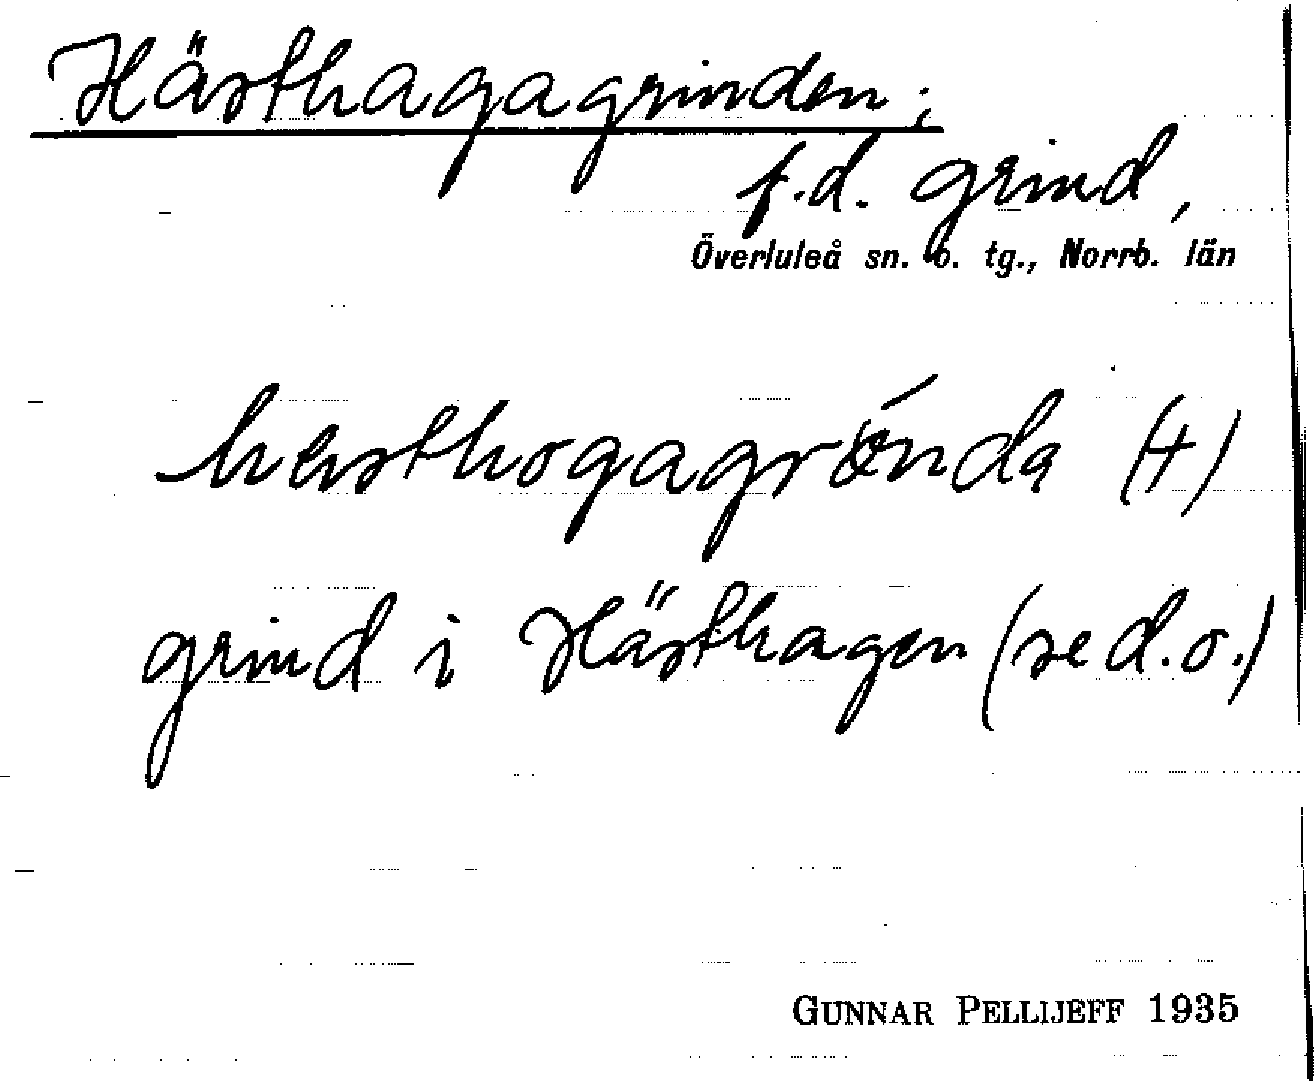 Hästhagagrinden;
f.d. grind,
Överluleå sn. o. tg., Norrb. län
(+)
grind i Hästhagen (se d.o.)
GUNNAR PELLIJEFF 1935